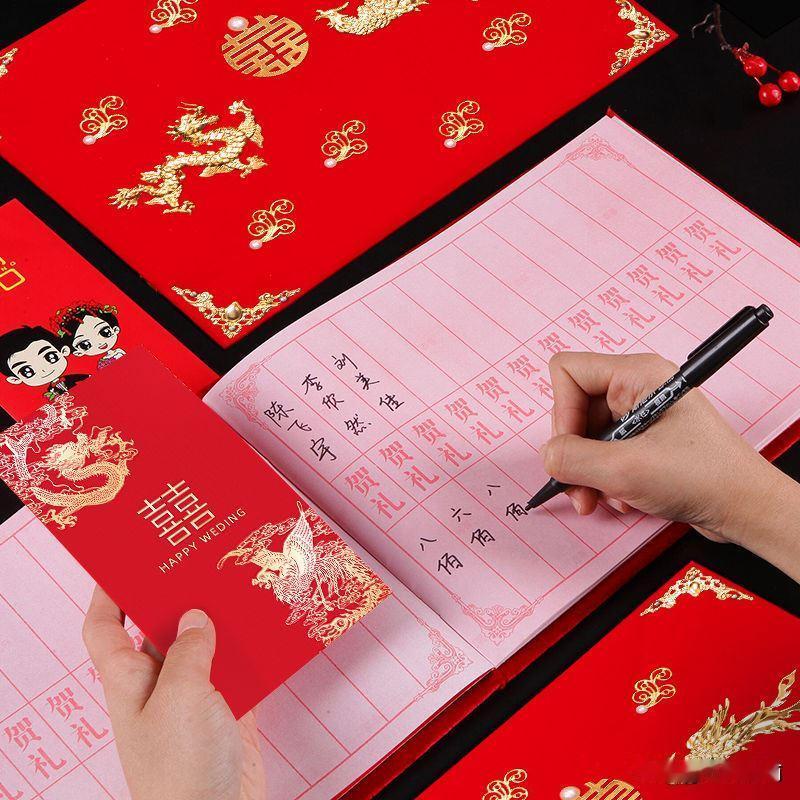 囍
陈飞宇
李欣然
刘美佳
贺礼
贺礼
贺礼
贺礼
贺礼
贺礼
贺礼
贺礼
贺礼
贺礼
贺礼
贺礼
八佰
六佰
八佰
囍
HAPPY WEDING
贺礼
贺礼
囍